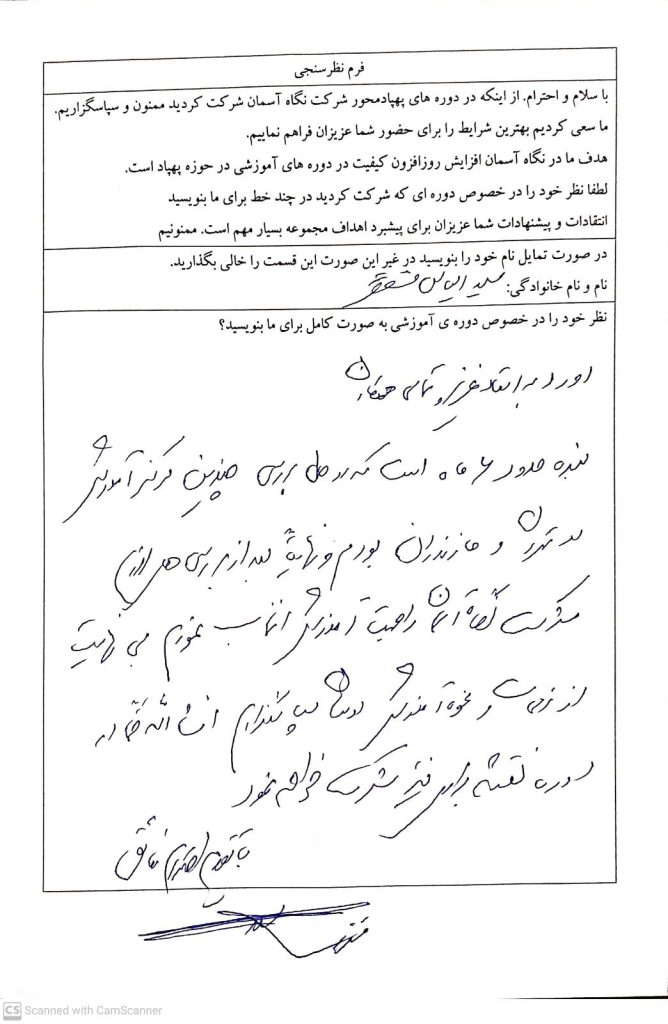 فرم نظرسنجی
با سلام و احترام. از اینکه در دوره های پهپادمحور شرکت نگاه آسمان شرکت کردید ممنون و سپاسگزاریم.
ما سعی کردیم بهترین شرایط را برای حضور شما عزیزان فراهم نماییم.
هدف ما در نگاه آسمان افزایش روزافزون کیفیت در دوره های آموزشی در حوزه پهپاد است.
لطفا نظر خود را در خصوص دوره ای که شرکت کردید در چند خط برای ما بنویسید
انتقادات و پیشنهادات شما عزیزان برای پیشبرد اهداف مجموعه بسیار مهم است. ممنونیم
در صورت تمایل نام خود را بنویسید در غیر این صورت این قسمت را خالی بگذارید.
نام و نام خانوادگی: سید الیاس
نظر خود را در خصوص دوره ی آموزشی به صورت کامل برای ما بنویسید؟
به عزیز و تمامی همکاران
بنده حدود ۶ ماه است که در حال بررسی چندین مرکز آموزش
در تهران و مازندران بودم و نهایتا بعد از بررسی های لازم
شرکت نگاه آسمان را جهت آموزش انتخاب نمودم بی نهایت
از زحمات و نحوه آموزش دوستان سپاسگذارم انشااله
دوره نقشه برداری نیز شرکت خواهم نمود
با تقدیم احترام فائق
CS Scanned with CamScanner